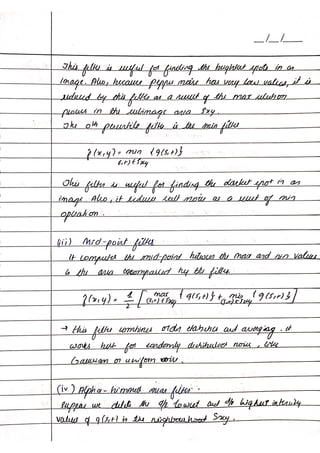 __/__/__
This filter is useful for finding the brightest spots in an
image. Also, because pepper noise has very low values, it is
reduced by this filter as a result of the max selection
process in the subimage area Sxy.
The 0th percentile filter is the min filter
f̂(x,y) = min {g(s,t)}
(s,t)∈Sxy
This filter is useful for finding the darkest spot in an
image. Also, it reduces salt noise as a result of min
operation.
(iii) Mid-point filter
It computes the mid-point between the max and min values
in the area encompassed by the filter.
f̂(x,y) = 1/2 [ max {g(s,t)} + min {g(s,t)} ]
(s,t)∈Sxy (s,t)∈Sxy
→ this filter combines order statistics and averaging. it
works best for randomly distributed noise, like
Gaussian or uniform noise.
(iv) Alpha-trimmed mean filter.
suppose we delete the d/2 lowest and d/2 highest intensity
values of g(s,t) in the neighbourhood Sxy.